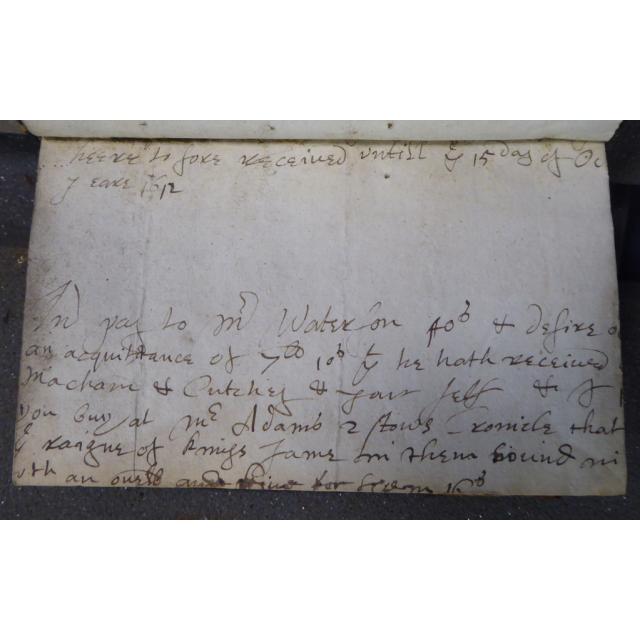 heere to fore received untill yͤ 15 day of Oc
yeare 1612
And pay to Mʳ Waterson 40ˢ & desire o
an acquittance of 7ˡⁱ 10ˢ yᵗ he hath received
Macham & Cutchey & your self & I
you buy at Mʳ Adams 2 stows Cronicle that
yͤ raigne of kinge Jame in them bound
th an